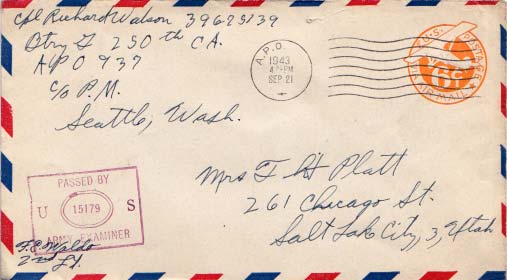 Cpl Richard Watson 39625139
Btry G 250th CA.
APO 937
c/o P.M.
Seattle, Wash.
A.P.O.
1943
SEP 21
U.S. POSTAGE
6¢
AIR MAIL
Mrs F H Platt
261 Chicago St.
Salt Lake City, 3, Utah
PASSED BY
U 15179 S
ARMY EXAMINER
F.C. Waldo
2nd Lt.